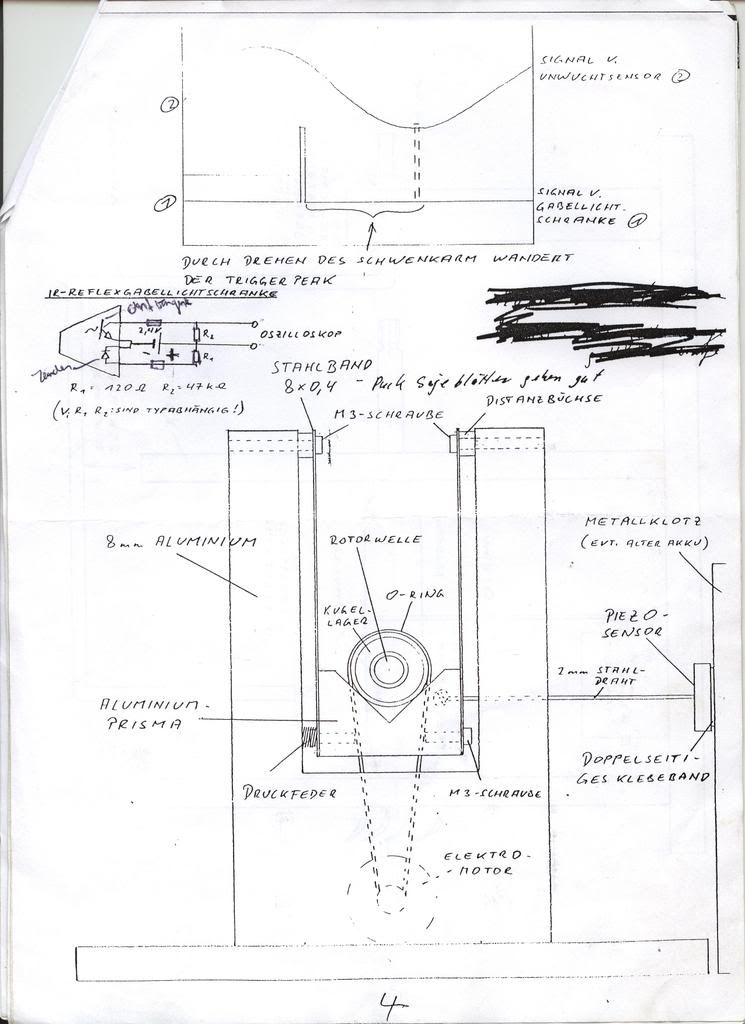 SIGNAL V.
UNWUCHTSENSOR ②
②
①
SIGNAL V.
GABELLICHT-
SCHRANKE ①
DURCH DREHEN DES SCHWENKARM WANDERT
DER TRIGGER PEAK
IR-REFLEXGABELLICHTSCHRANKE
Empfänger
2,4V
R₂
R₁
- +
OSZILLOSKOP
Sender
R₁ = 120 Ω R₂ = 47 kΩ
(V, R₁ R₂: SIND TYPABHÄNGIG!)
STAHLBAND
8 x 0,4 - Puk Sägeblätter gehen gut
M3-SCHRAUBE
DISTANZBÜCHSE
8mm ALUMINIUM
ROTORWELLE
O-RING
KUGEL-
LAGER
METALLKLOTZ
(EVT. ALTER AKKU)
PIEZO-
SENSOR
2mm STAHL-
DRAHT
ALUMINIUM-
PRISMA
DRUCKFEDER
M3-SCHRAUBE
DOPPELSEITI-
GES KLEBEBAND
ELEKTRO-
MOTOR
4